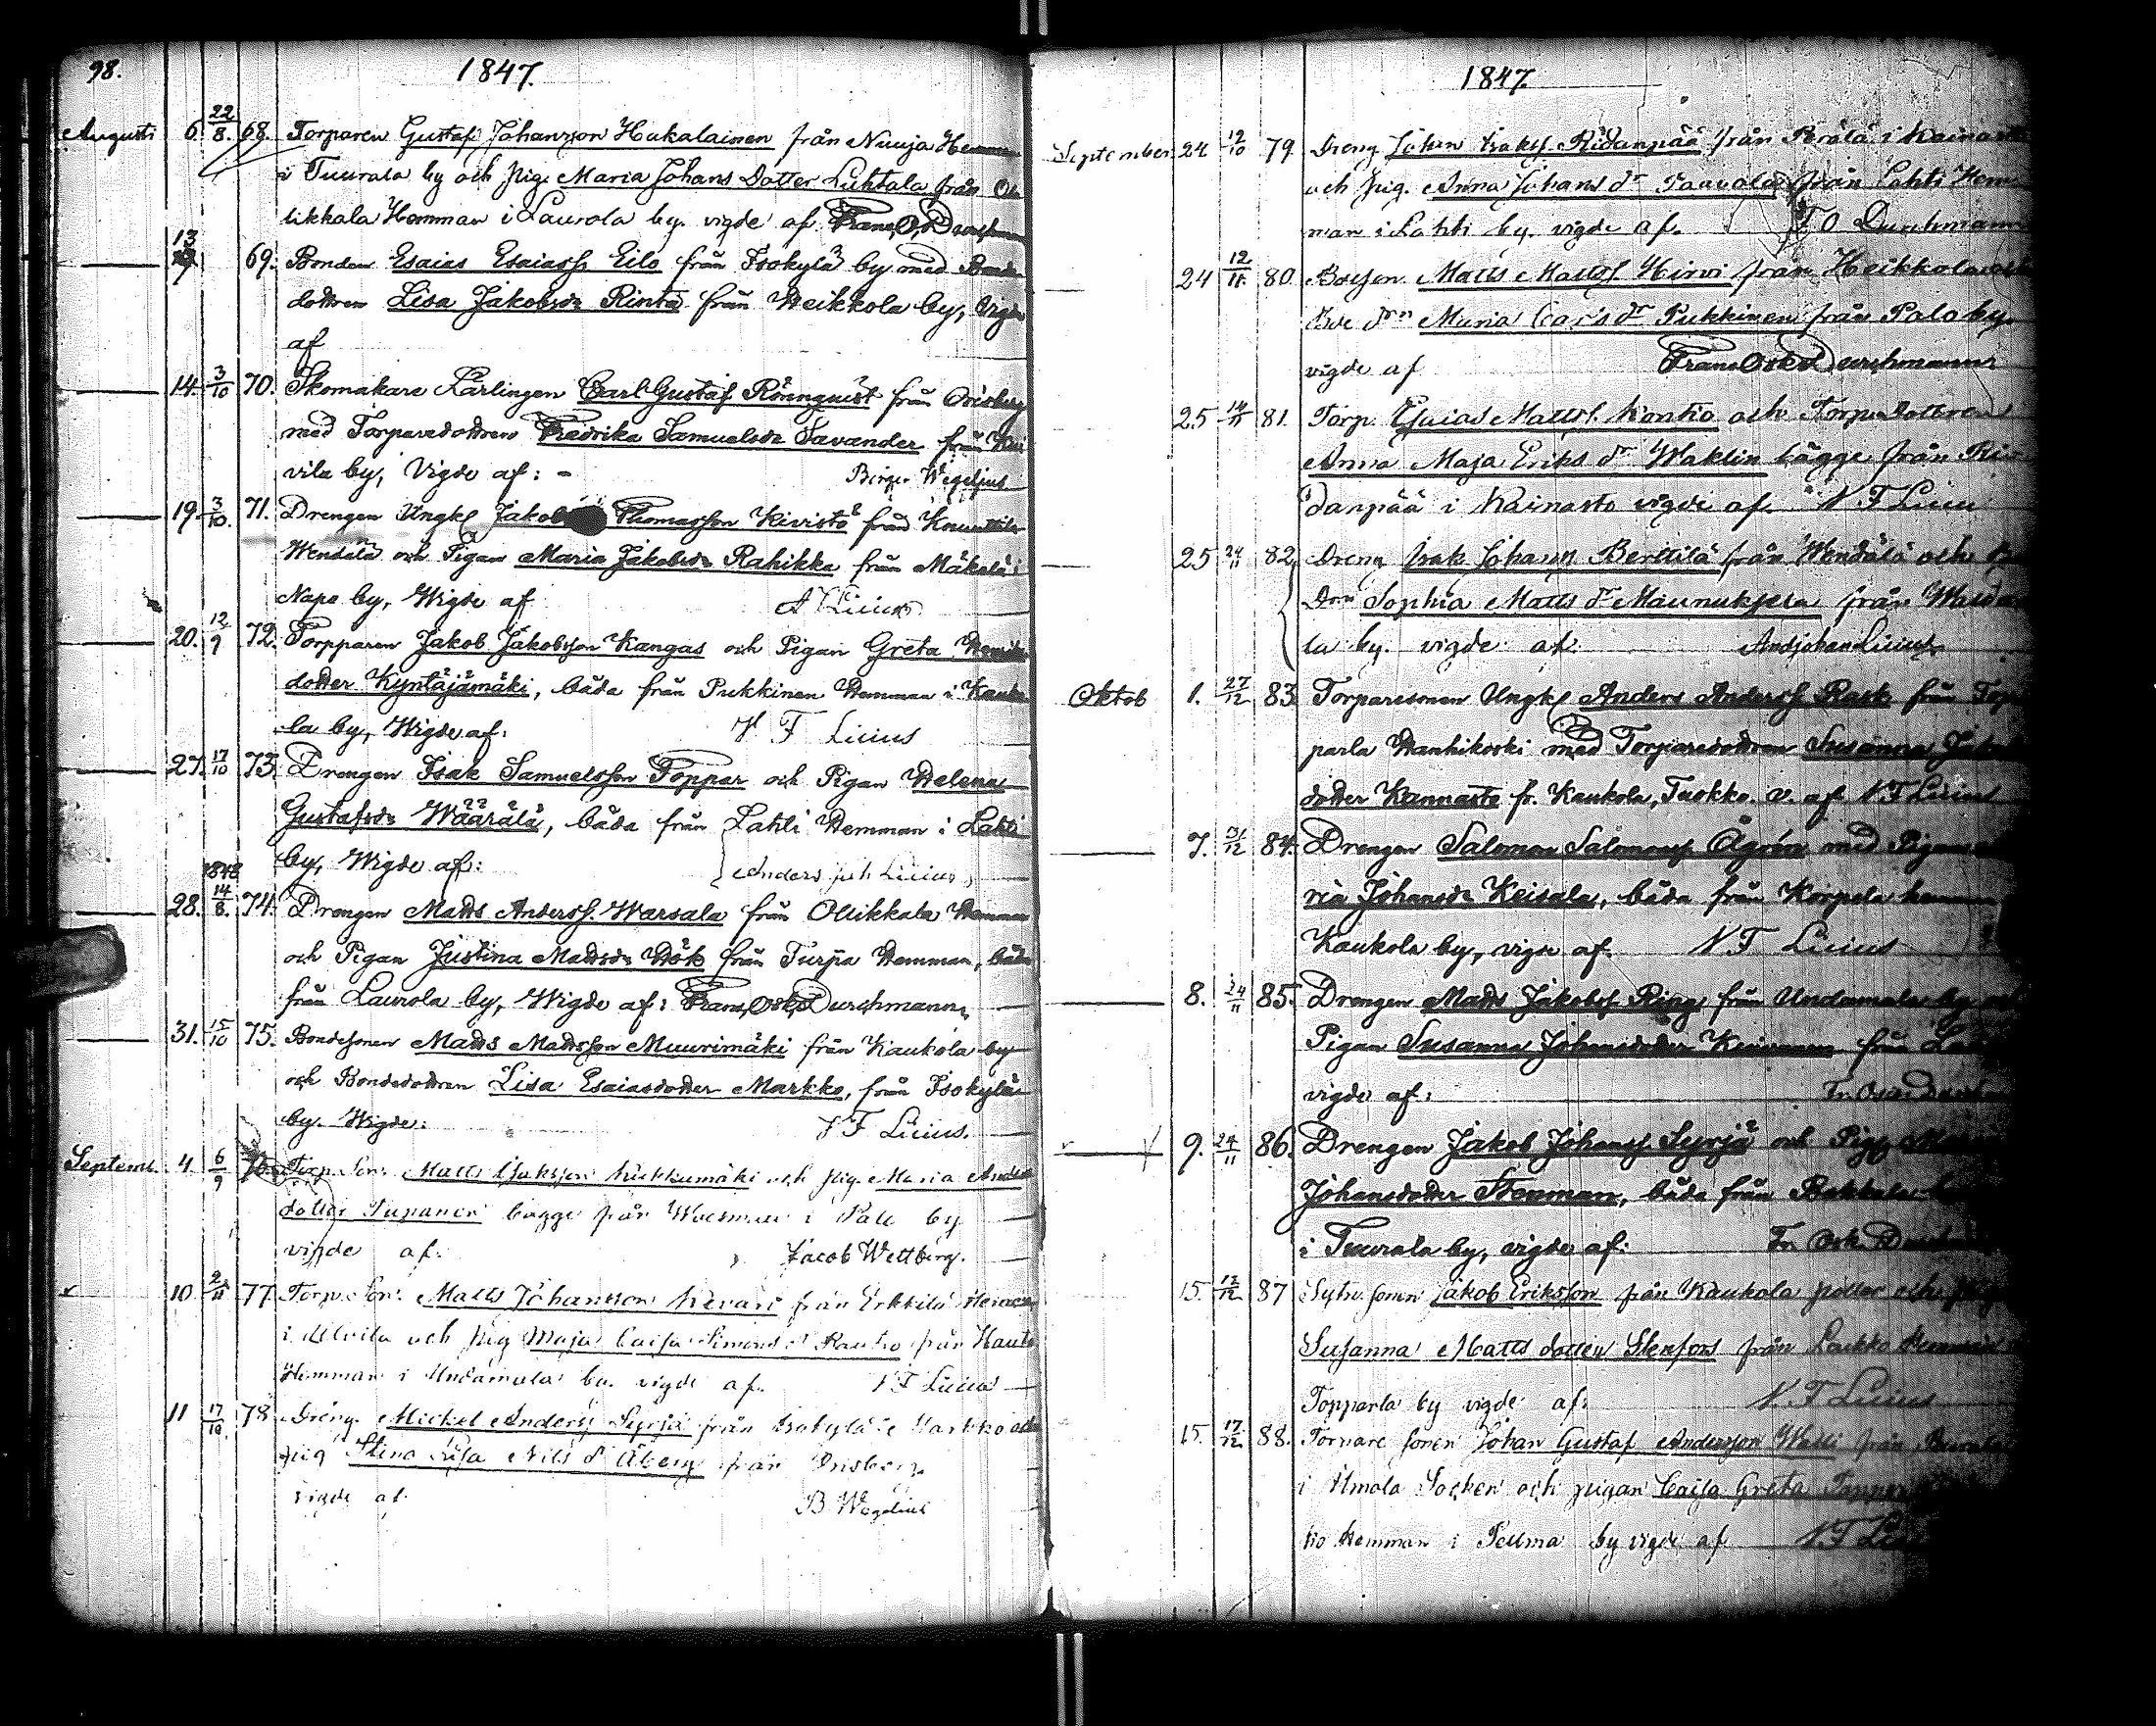 98.
1847.
Augusti 6. 22/8. 68. Torparen Gustaf Johansson Hukalainen från Nuuja Hemman
i Tuurala by och Pig. Maria Johans Dotter Luhtala från Ol
likkala Hemman i Laurola by. vigde af Frans O Durchman
7 13 69. Bonden Esaias Esaiass. Eilo från Isokylä by med Bonde
dottren Lisa Jakobsdr Rinta från Heikkola by, Vigde
af
14. 3/10 70. Skomakare Lärlingen Carl Gustaf Rönnquist från Orisberg
med Torparedottren Fredrika Samuelsdr Savander från
vila by, Vigde af: - Birger Wegelius
19. 3/10. 71. Drengen Ungk. Jakob Thomasson Kivistö från Knuuttila
Wendälä och Pigan Maria Jakobsdr Rahikka från Mäkelä i
Napo by, Wigde af A Lucius
20. 12/9 72. Torpparen Jakob Jakobsson Kangas och Pigan Greta
dotter Kyntäjämäki, båda från Pukkinen Hemman i Kauko
la by, Wigde af: N F Lucius
27. 17/10 73. Drengen Isak Samuelsson Toppar och Pigan Helena
Gustafsdr Wäärälä, båda från Lahti Hemman i Lahti
by, Wigde af: Anders joh Lucius
1848
28. 14/8. 74. Drengen Matts Anderss. Warsala från Ollikkala Hemman
och Pigan Justina Mattsdr Hök från Turja Hemman, båda
från Laurola by, Wigde af: Frans Osk Durchmann
31. 15/10 75. Bondesonen Matts Mattsson Muurimäki från Kaukola by
och Bondedottren Lisa Esaiasdotter Markko, från Isokylä
by. Wigde: N F Lucius.
Septemb. 4 6/9 76. Torp. Son. Matts Isaksson Mikkumäki och pig. Maria Anders
dotter Tupanen bägge från i Palo by
vigde af. Jacob Wettberg.
10 2/11 77 Torp. Son. Matts Johansson Kevari från Erkkilä Hemman
i Ulvila och pig Maja Caisa Simons dr Rautio från Hauta
Hemman i Undamala by. vigde af. N F Lucius
11 17/10. 78 Dräng. Mickel Anderss Syrjä från Isokylä i Markko och
pig Stina Lisa Nils dr Åberg från Orisberg
vigde af B Wegelius
1847.
September 24 12/10 79 Dreng Johan Isakss. Ridanpää från Perälä i Kainasto
och pig. Anna Johans dr Paavola från Lahti Hem
man i Lahti by. vigde af. F O Durchmann
24 12/11. 80. Bosson Matts Mattss. Hirvi från Heikkola
Bde drn Maria Cas's dr Pukkinen från Palo by.
vigde af Frans Oskr Durchmann
25 14/11 81. Torp. Esaias Mattss. Kontio och Torpa Dottren
Anna Maja Eriks dr Waklin bägge från Ri
danpää i Kainasto vigde af. N F Lucius
25 24/11 82, Dreng Isak Johanss. Berttilä från Wendälä och
Drn Sophia Matts dr Maunuksela från
la by. vigde af. And johan Lucius
Oktob 1. 27/12 83. Torparesonen Ungk. Anders Anderss. Rask från Top
parla Hanhikoski med Torparedottren Susanna Jakobs
dotter Kannasto fr. Kaukola, Tuokko. v. af N F Lucius
7. 31/12 84. Drengen Salomon Salomonss. Ågrén med Pigan Ma
ria Johansdr Keisala, båda från Korpela hemman
Kaukola by, vigde af. N F Lucius
8. 24/11 85. Drengen Matts Jakobss. Ring från Undamala by och
Pigan Susanna Johansdotter från
vigde af: Fr. Oscar
9. 24/11 86. Drengen Jakob Johanss. Syrjä och Pig.
Johansdotter Stenman, båda från Bakkala
i Tuurala by, vigde af: Fr Osk D
15. 12/12 87 Sytn. sonen Jakob Eriksson från Kaukola och pig
Susanna Matts dotter Stenfors från Laukko Hemman
Topparla by vigde af. N F Lucius
15. 17/12 88. Tornare sonen Johan Gustaf Andersson Walli från
i Ilmola Socken och pigan Caisa Greta Toppar
ko Hemman i Palima by vigde af N F